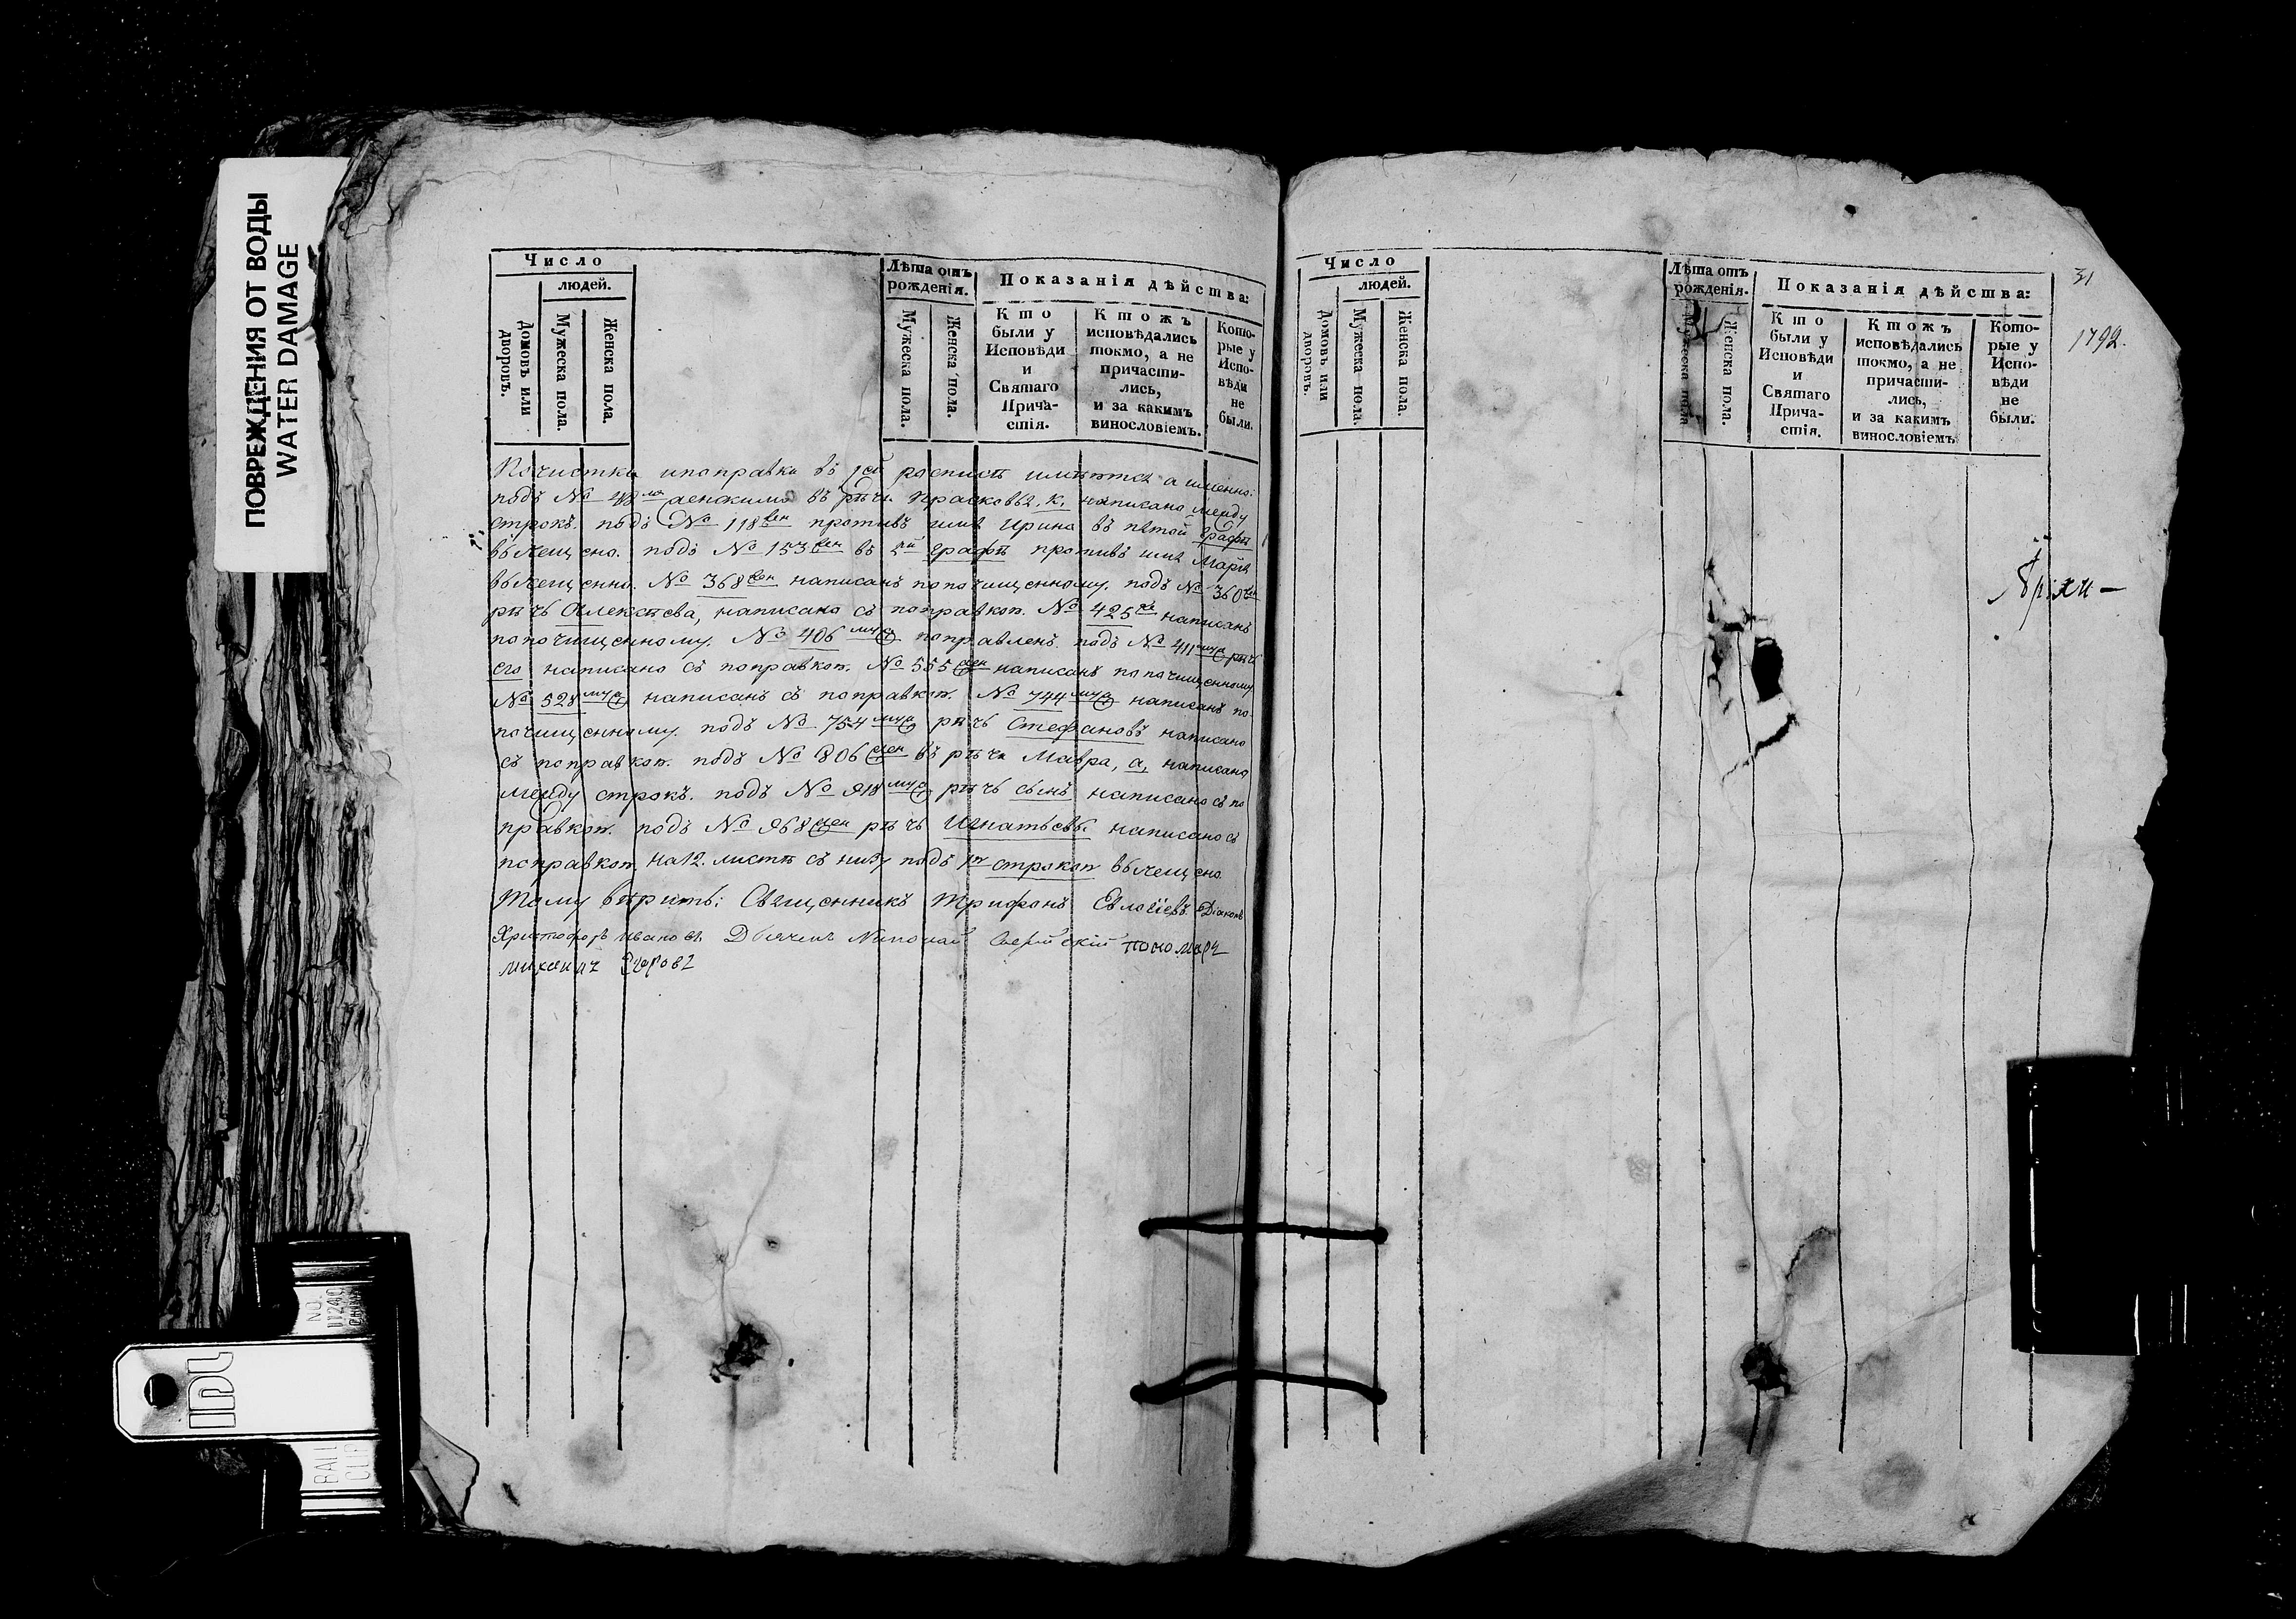 ПОВРЕЖДЕНИЯ ОТ ВОДЫ
WATER DAMAGE
Число
людей.
Домовъ или дворовъ.
Мужеска пола.
Женска пола.
Лѣта отъ рожденія.
Мужеска пола.
Женска пола.
Показанія дѣйства:
Кто
были у
Исповѣди
и
Святаго
Прича-
стія.
Ктожъ
исповѣдались
токмо, а не
причасти-
лись,
и за какимъ
винословіемъ.
Кото-
рые у
Испо-
вѣди
не
были.
Почистки ипоправки въ сей росписи имѣются а именно:
подъ № женскимъ въ рѣчи Прасковья, к, написано между
строкъ. подъ № 118 жен противъ имя Ирина въ пятой графѣ
вычещено. подъ № 153 жен въ 5й графѣ противъ имя Марья
вычещенно. № 368 жен написанъ попочищенному. подъ № 360 жен
рѣчь Алексѣева, написано съ поправкою. № 425 написанъ
попочищенному. № 406 муж поправленъ подъ № 411 муж рѣчь
его написано съ поправкою. № 555 жен написанъ попочищенному
№ 528 муж написанъ съ поправкою. № 744 муж написанъ по-
почищенному. подъ № 754 муж рѣчь Стефановъ написано
съ поправкою. подъ № 806 жен въ рѣчи Мавра, а, написано
между строкъ. подъ № 918 муж рѣчь сынъ написано съ по
правкою. подъ № 968 жен рѣчь Игнатьевы написано съ
поправкою, на 12. листѣ съ низу подъ строкою вычещено
Тому вѣрить: Священникъ Трифонъ Евлогіевъ Діаконъ
Христофоръ Ивановъ Дьячекъ Николай пономарь
Михаилъ
NO.
11240
BALL
CLIP
IDL
Число
людей.
Домовъ или дворовъ.
Мужеска пола.
Женска пола.
Лѣта отъ рожденія.
Мужеска пола
Женска пола.
Показанія дѣйства:
Кто
были у
Исповѣди
и
Святаго
Прича-
стія.
Ктожъ
исповѣдались
токмо, а не
причасти-
лись,
и за какимъ
винословіемъ
Кото-
рые у
Испо-
вѣди
не
были.
31
1792.